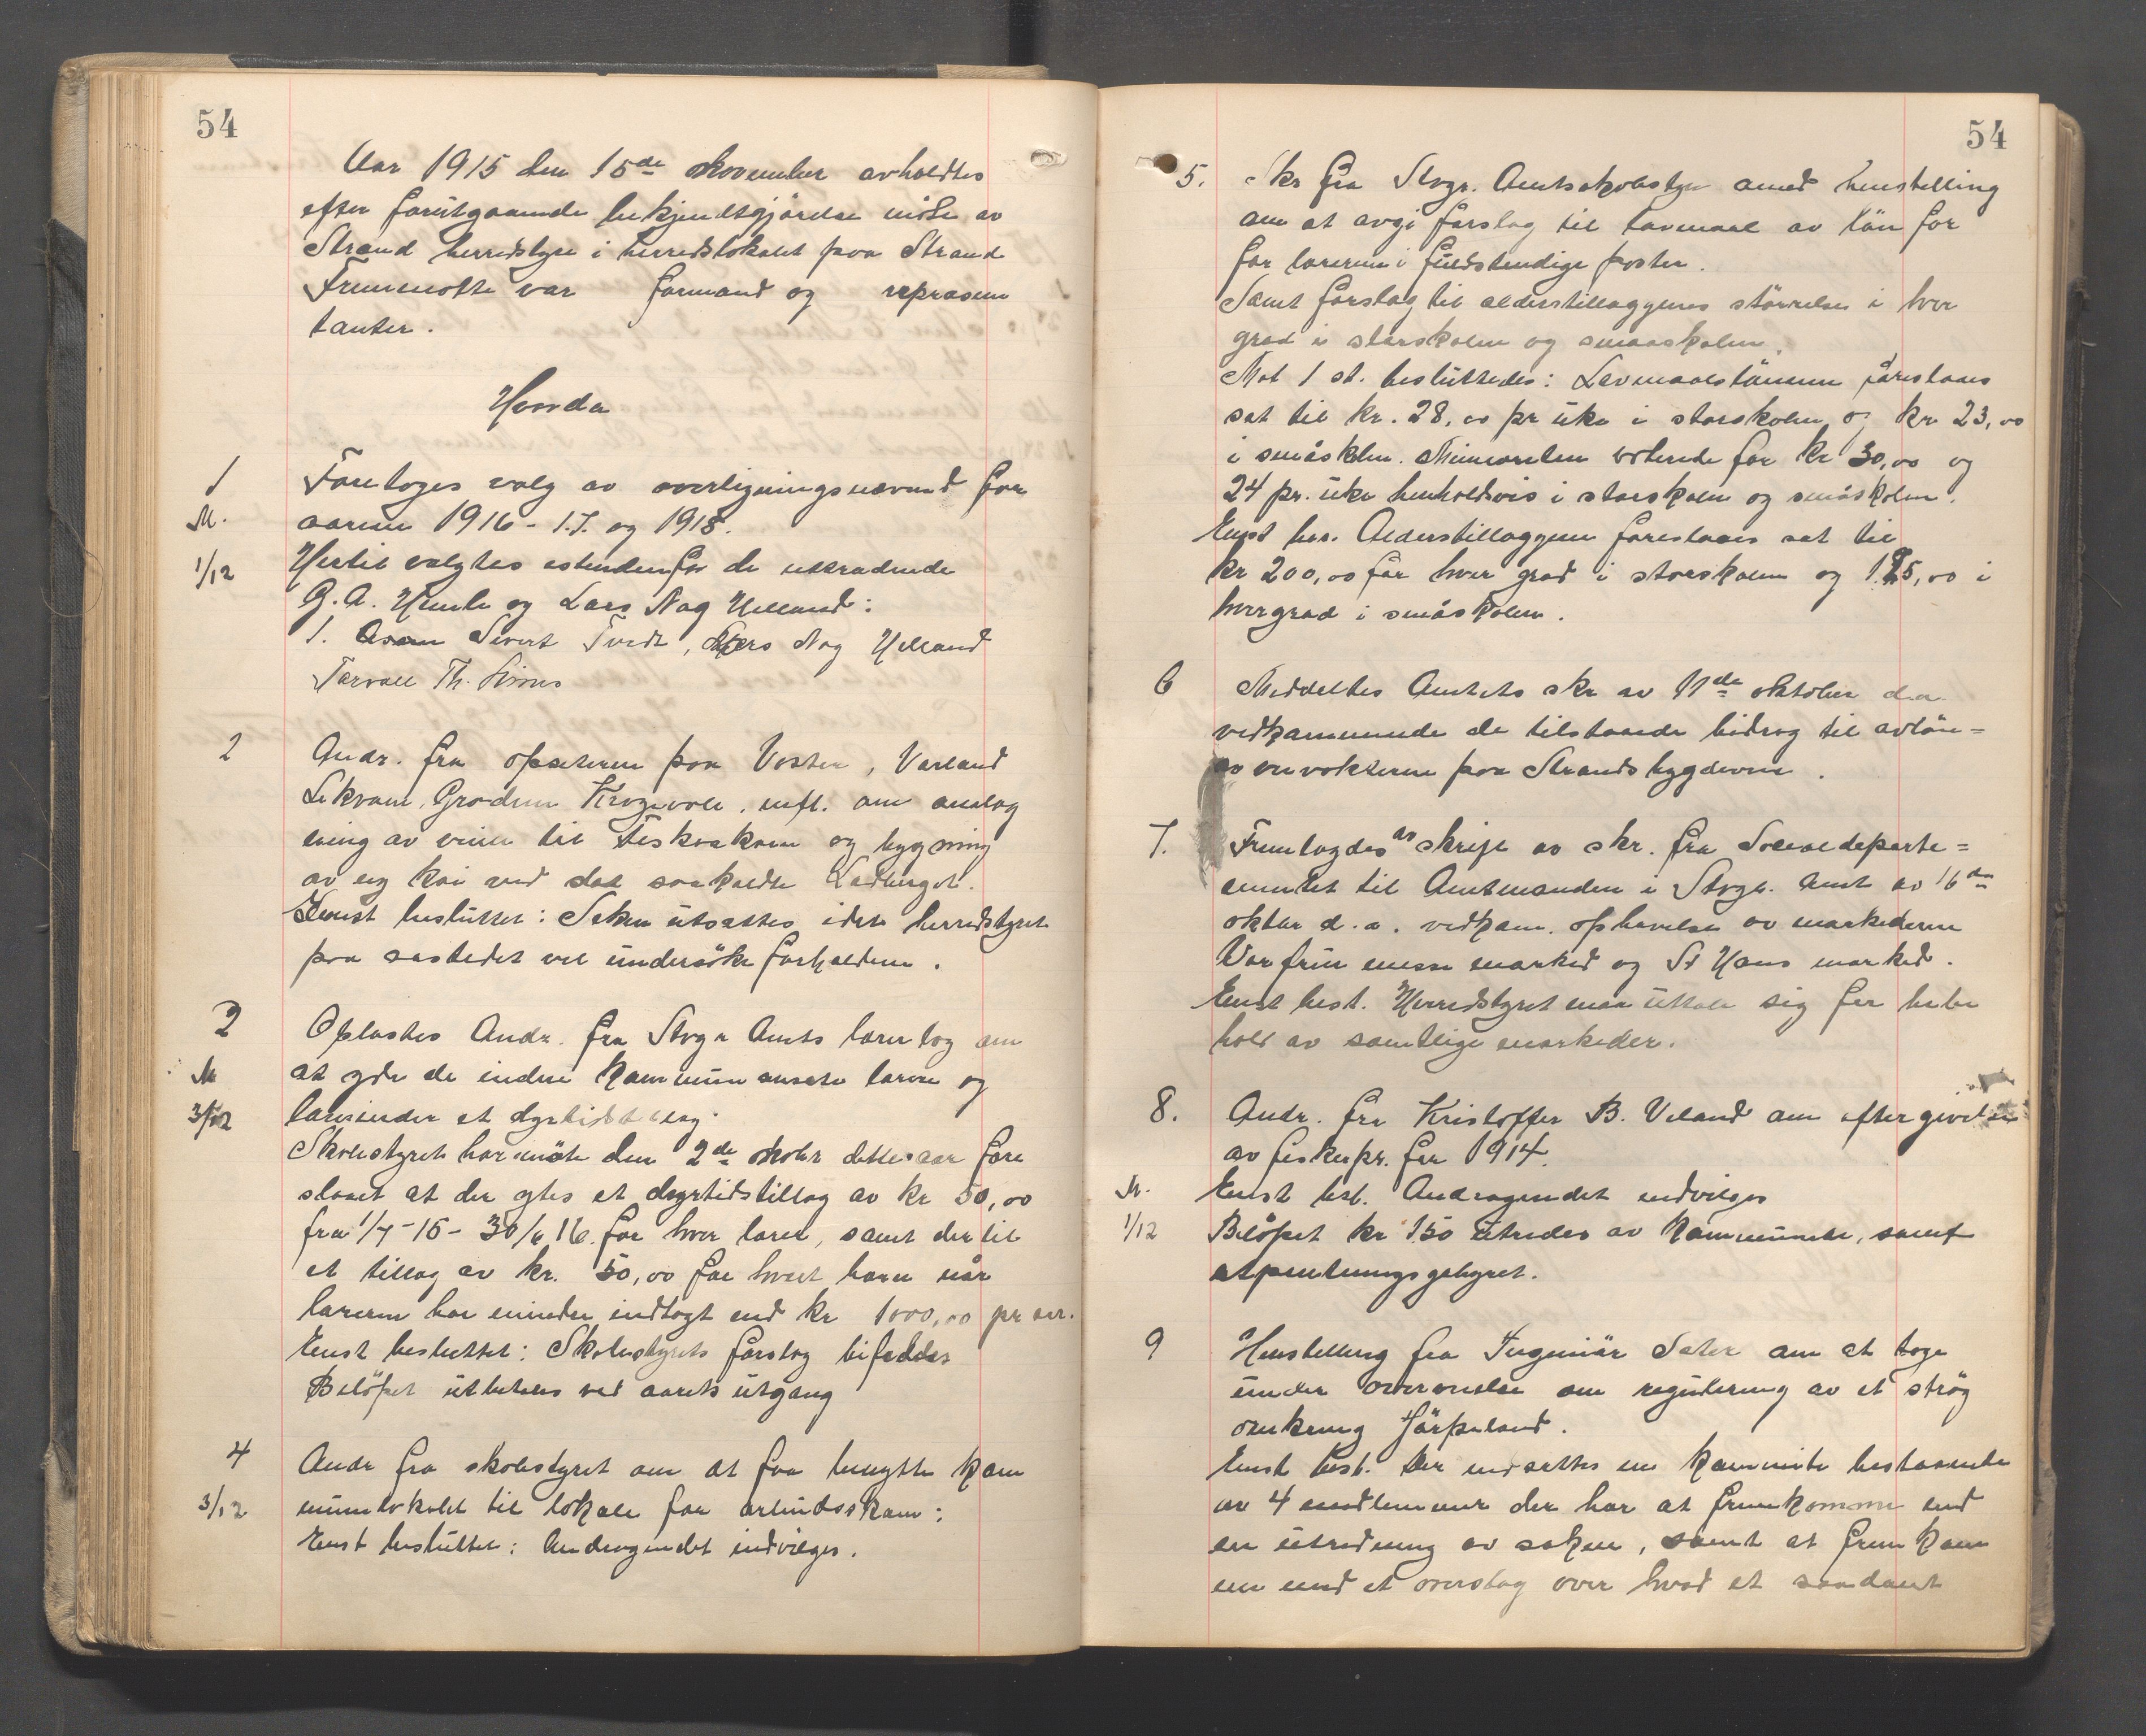 54
Aar 1915 den 15de November avholdtes
efter forutgaaende bekjendtgjörelse möte av
Strand herredstyre i herredslokalet paa Strand
Fremmötte var formand og repræsen
tanter.
Hvorda
1
M.
1/12
Foretoges valg av overligningsnævnd for
aarene 1916 - 17 og 1918.
Hertil valgtes istendenfor de uttrædende
G. A. Hemle og Lars Nag Helland:
1. Sivert Tvedt, Lars Nag Helland
Torvall Th.
2
Andr. fra opsitterne paa Voster, Varland
Lekvam, Groden Krogevoll, mfl. om anlæg
ning av veien til Fiskaaken og bygning
av ny kai ved det saakaldte Ladberget.
Enst besluttet: Saken utsættes idet herredstyret
paa aastedet vil undersöke forholdene.
3
M
3/12
Oplæstes Andr. fra Stvgr Amts lærerlag om
at yde de indeni kommunen ansatte lærere og
lærerinder et dyrtidstillæg.
Skolestyret har i möte den 2de oktober dette aar fore
slaaet at der ytes et dyrtidstillæg av kr 50,00
fra 1/7-15 - 30/6 16 for hver lærer, samt dertil
et tillæg av kr. 50,00 for hvert barn når
læreren har mindre indtægt end kr 1000,00 pr aar.
Enst besluttet: Skolestyrets forslag bifaldes
Belöpet utbetales ved aarets utgang
4
3/12
Andr fra skolestyret om at faa benytte kom
munelokalet til lokale for arbeidsskole:
Enst besluttet: Andragendet indvilges.
54
5. Skr fra Stvgr. Amtsskolestyre med henstilling
om at avgi forslag til lavmaal av lön for
for lærerne i fuldstendige poster.
Samt forslag til alderstillæggenes störrelse i hver
grad i storskolen og smaaskolen.
Mot 1 st. besluttedes: Lavmaalslönnen foreslaaes
sat til kr. 28,00 pr uke i storskolen og kr 23,00
i småskolen. Minoriteten voterede for kr 30,00 og
24 pr. uke henholdsvis i storskolen og småskolen.
Enst bes. Alderstillæggene foreslaaes sat til
kr 200,00 för hver grad i storskolen og 125,00 i
hver grad i småskolen.
6 Meddeltes Amtets skr av 11de oktober d.a.
vedkommende de tilstaaede bidrag til avlön=
av envokterne paa Strandsbygderne.
7. Fremlagdes avskrift av skr. fra Socialdeparte=
mentet til Amtmanden i Stvgr. Amt av 16de
oktbr d.a. vedkom. ophævelse av markederne
Vor frue messe marked og St Hans marked.
Enst best. Herredstyret maa uttale sig for bebe
hold av samtlige markeder.
8. Andr. fra Kristoffer B. Veland om eftergivelse
av feskerpr. for 1914.
M. Enst bes. Andragendet indvilges
1/12 Belöpet kr 1.50 utredes av kommunen, samt
utpantningsgebyret.
9 Henstilling fra Ingeniör Sæter om at tage
under overveielse om regulering av et strög
omkring Jörpeland.
Enst best. Der nedsættes en kommite bestaaende
av 4 medlemmer der har at fremkomme med
en utredning av saken, samt at frem kom
me med et overslag over hvad et saadant